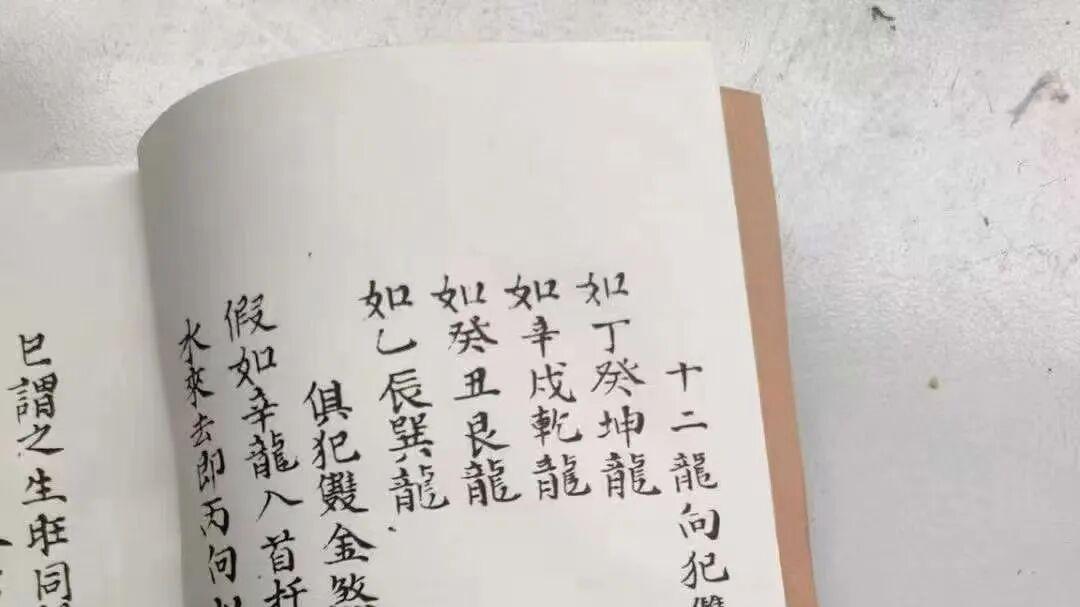 十二龍向犯
如丁癸坤龍
如辛戌乾龍
如癸丑艮龍
如乙辰巽龍
俱犯雙金煞
假如辛龍入首扦
水來去即丙向
巳謂之生旺同